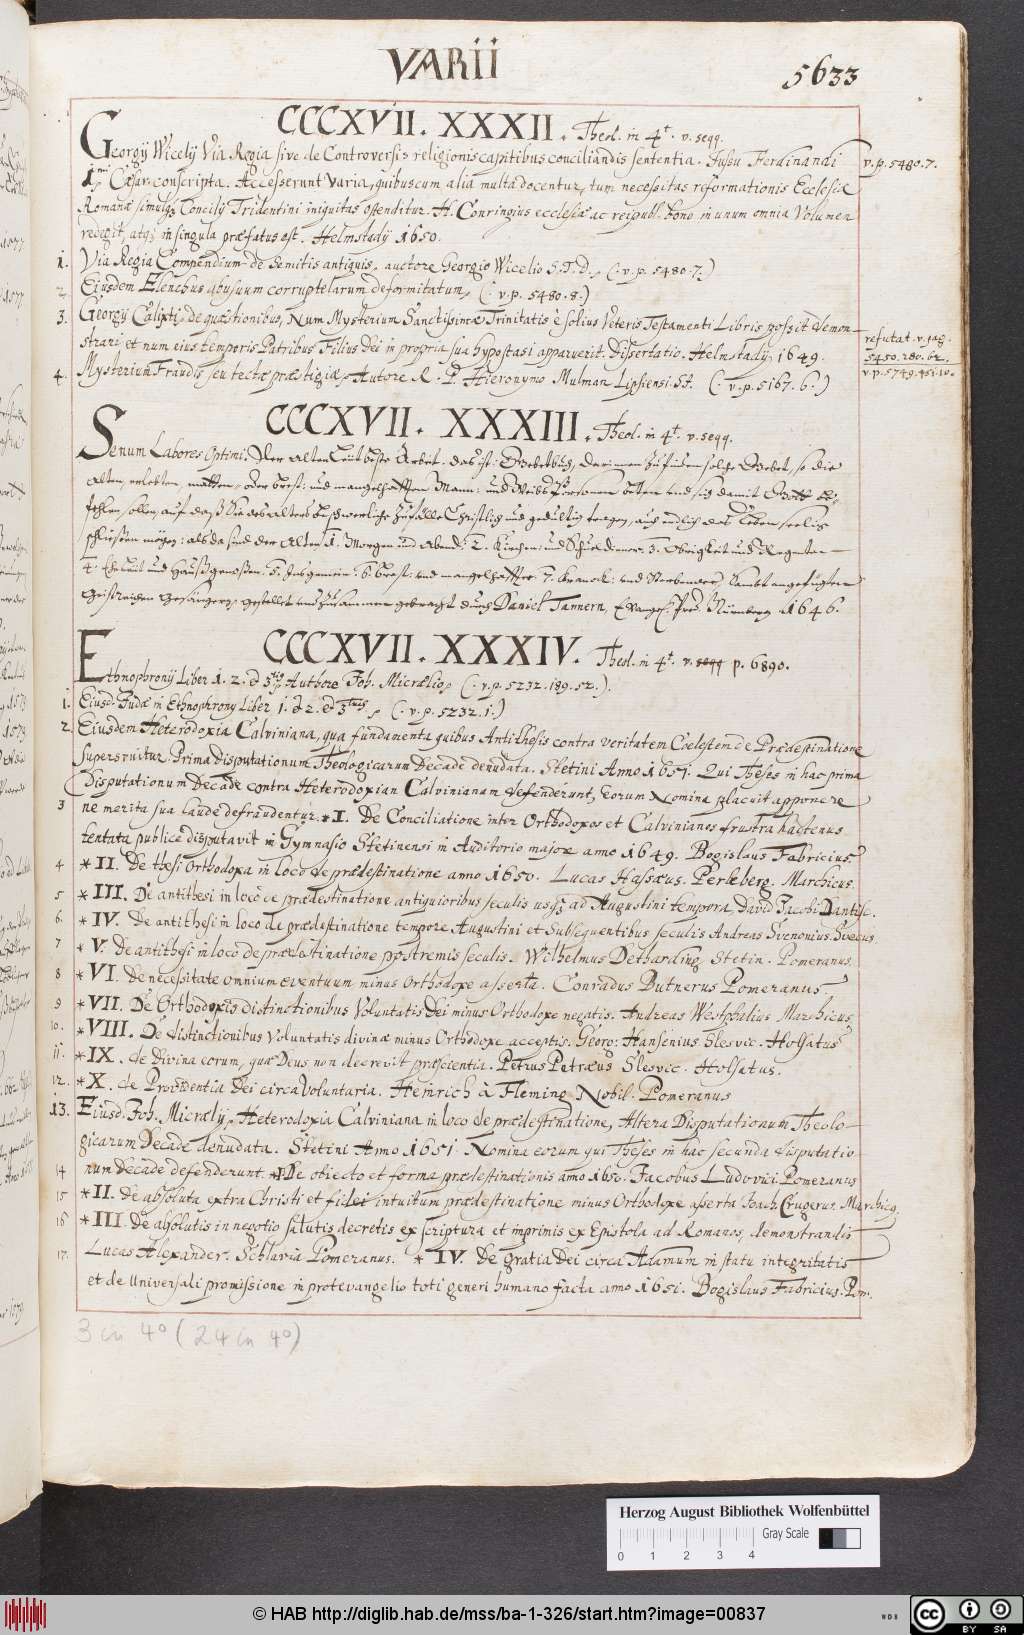 VARII
5633
CCCXVII. XXXII. Theol. in 4t. v. seqq.
Georgij Wicelij Via Regia sive de Controversis religionis capitibus conciliandis sententia. Jussu Ferdinandi
v. p. 5480.7.
1mi Cæsar. conscripta. Accesserunt Varia, quibuscum alia multa docentur, tum necessitas reformationis Ecclesiæ
Romanæ simulq; Concilij Tridentini iniquitas ostenditur. H. Conringius ecclesiæ ac reipubl. bono in unum omnia Volumen
redegit, atq; in singula præfatus est. Helmstadij 1650.
1. Via Regia Compendium de Semitis antiquis, auctore Georgio Wicelio S. T. D. (: v. p. 5480.7.)
2. Eiusdem Elenchus abusuum corruptelarum deformitatum, (: v. p. 5480.8.)
3. Georgij Calixti, de quæstionibus, Num Mysterium Sanctissimæ Trinitatis è solius Veteris Testamenti Libris possit demon-
strari et num eius temporis Patribus Filius Dei in propria sua hypostasi apparuerit. Dissertatio. Helmstadij. 1649.
refutat. v. pag.
5450.280.62.
v. p. 5749.451.10.
4. Mysterium Fraudis seu tectæ præstigiæ, Autore R. P. Hieronymo Mulman Lipsiensi SJ. (: v. p. 5167.6.)
CCCXVII. XXXIII. Theol. in 4t. v. seqq.
Senum Labores Optimi. Der Alten Leut beste Arbeit. das ist: Gebetbuch, darinnen zu finden solche Gebet, so die
Alten, verlebten, matten, oder Brest: und mangelhafften Mann: und Weibs Personen beten und sich damit Gott be-
fehlen sollen, auf daß sie des Alters beschwerliche Zufälle Christlich und gedultig tragen, auch endlich das Leben seelig
schließen mögen: als da sind der Alten 1. Morgen und Abend: 2. Kirchen: und Schuldiener. 3. Obrigkeit und Regenten
4. Eheleut und Haußgenoßen. 5. Insgemein. 6. Brest: und mangelhaffter. 7. Kranck: und Sterbender, sambt angefügten
Geistreichen Gesängern, gestellet und zusammen gebracht durch Daniel Tannern, Evangel. Pred. Nürnberg 1646.
CCCXVII. XXXIV. Theol. in 4t. v. seqq p. 6890.
Ethnophronij Liber 1. 2. & 3tij Authore Joh. Micrælio, (: v. p. 5232.189.52.)
1. Eiusd. Judæ in Ethnophrony Liber 1. & 2. & 3tius, (: v. p. 5232.1.)
2. Eiusdem Heterodoxia Calviniana, qua fundamenta quibus Antithesis contra veritatem Coelestem de Prædestinatione
superstruitur. Prima Disputationum Theologicarum Decade denudata. Stetini Anno 1651. Qui Theses in hac prima
Disputationum Decade contra Heterodoxian Calvinianam defenderunt, eorum Nomina placuit apponere
3 ne merita sua laude defraudentur. * I. De Conciliatione inter Orthodoxos et Calvinianos frustra hactenus
tentata publice disputavit in Gymnasio Stetinensi in Auditorio majore anno 1649. Bogislaus Fabricius.
4 * II. De thesi Orthodoxa in loco de prædestinatione anno 1650. Lucas Hassæus. Perleberg. Marchicus.
5 * III. De antithesi in loco de prædestinatione antiquioribus seculis usq; ad Augustini tempora, David Jacobi Dantisc.
6. * IV. De antithesi in loco de prædestinatione tempore Augustini et Subsequentibus seculis Andreas Svenonius. Svecus
7 * V. De antithesi in loco de prædestinatione postremis seculis. Wilhelmus Detharding. Stetin. Pomeranus.
8 * VI. De necessitate omnium eventuum minus Orthodoxe asserta. Conradus Butnerus Pomeranus
9 * VII. De Orthodoxis distinctionibus Voluntatis Dei minus Orthodoxe negatis. Andreas Westphalius Marchicus
10. * VIII. De distinctionibus Voluntatis divinæ minus Orthodoxe acceptis. Georg: Hansenius Slesvic. Holsatus
11. * IX. de Divina eorum, quæ Deus non decrevit præscientia. Petrus Petræus Slesvic. Holsatus.
12. * X. de Providentia Dei circa Voluntaria. Heinrich à Fleming Nobil. Pomeranus
13. Eiusd. Joh. Micrælij, Heterodoxia Calviniana in loco de prædestinatione, Altera Disputationum Theolo-
gicarum Decade denudata. Stetini Anno 1651. Nomina eorum qui Theses in hac secunda disputatio-
14 num Decade defenderunt. * I De obiecto et forma prædestinationis anno 1650. Jacobus Ludovici Pomeranus
15 * II. de absoluta extra Christi et fidei intuitum prædestinatione minus Orthodoxe asserta Joach. Crugerus. Marchicq.
16 * III. De absolutis in negotio salutis decretis ex scriptura et inprimis ex Epistola ad Romanos, demonstrandis
17. Lucas Alexander. Schlavia Pomeranus. * IV. De gratia Dei circa Adamum in statu integritatis
et de Universali promissione in protevangelio toti generi humano facta anno 1651. Bogislaus Fabricius. Pom.
3 in 4° (24 in 4°)
Herzog August Bibliothek Wolfenbüttel
Gray Scale
0 1 2 3 4
© HAB http://diglib.hab.de/mss/ba-1-326/start.htm?image=00837
WDB
cc BY SA